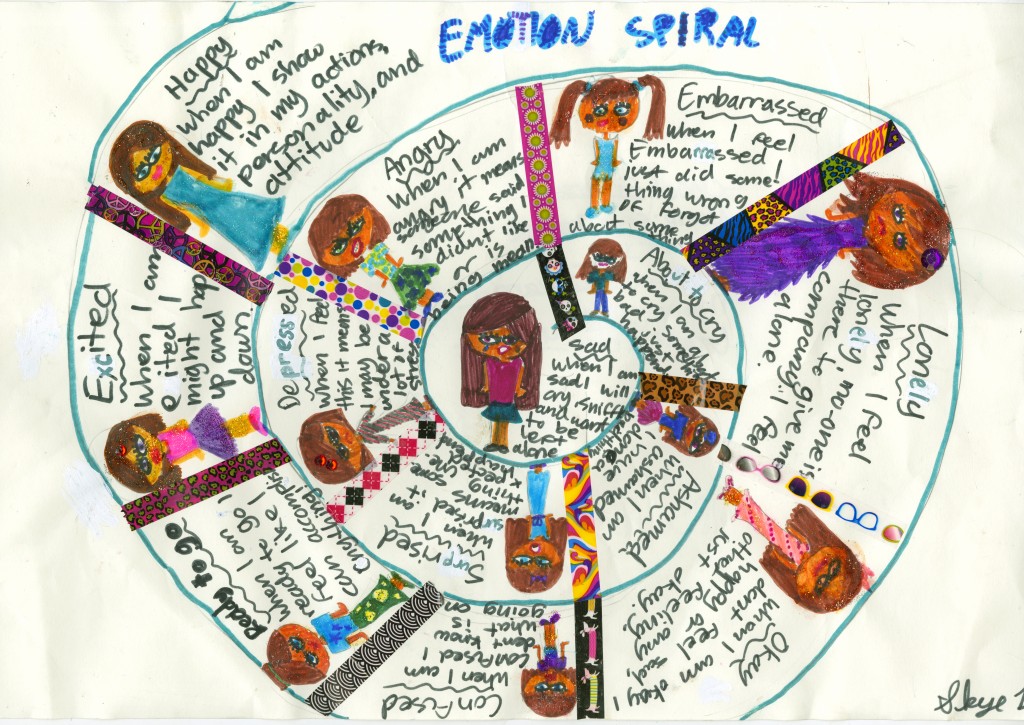 EMOTION SPIRAL
Happy
when I am
happy I show
it in my actions,
personality, and
attitude
Angry
when I am
angry it means
someone said
something I
didn't like
or is
being mean
Embarrassed
when I feel
Embarrassed I
just did some
thing wrong
or forgot
about some
thing
Lonely
when I feel
lonely
there is no-one
there to give me
company. I feel
alone.
About to cry
when I am about
to cry
Sad
when I am
sad I will
cry sniff
and want
to be
left
alone
Ashamed
when I am
ashamed
I don't value
Okay
when I am okay I
don't feel sad,
happy or any
other feeling
just okay.
Confused
when I am
confused I
don't know
what is
going on
Surprised
when I am
surprised it
means some
thing
Depressed
when I feel
this it means
I may be
under a
lot of
stress
Excited
when I am
excited I
might hop
up and
down.
Ready to go
when I am
ready to go I
feel like I
can accomplish
anything
Skye